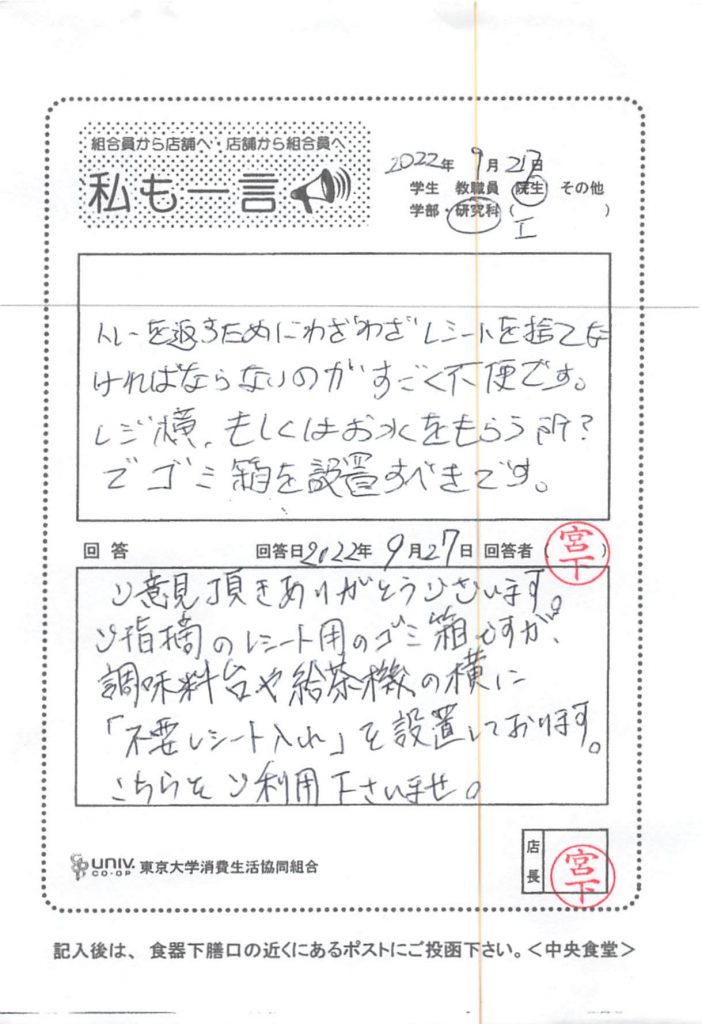 組合員から店舗へ・店舗から組合員へ
私も一言
2022年 9月27日
学生 教職員 院生 その他
学部・研究科( )
工
トレーを返すためにわざわざレシートを捨てな
ければならないのがすごく不便です。
レジ横、もしくはお水をもらう所?
でゴミ箱を設置すべきです。
回答 回答日2022年 9月27日 回答者( 宮下 )
ご意見頂きありがとうございます。
ご指摘のレシート用のゴミ箱ですが、
調味料台や給茶機の横に
「不要レシート入れ」を設置しております。
こちらをご利用下さいませ。
UNIV. CO-OP 東京大学消費生活協同組合
店長 宮下
記入後は、食器下膳口の近くにあるポストにご投函下さい。<中央食堂>